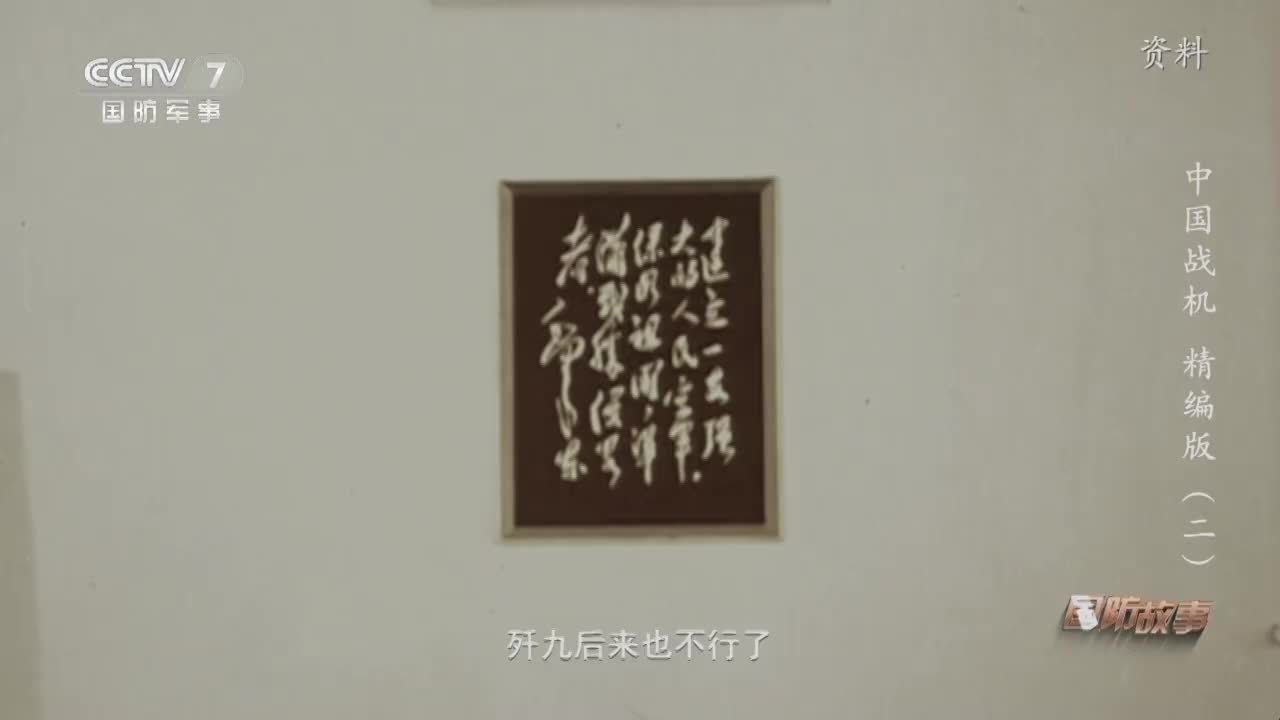 CCTV 7
国防军事
资料
中国战机 精编版（二）
建立一支强
大的人民空军，
保卫祖国，准
备战胜侵略
者。毛泽东
国防故事
歼九后来也不行了